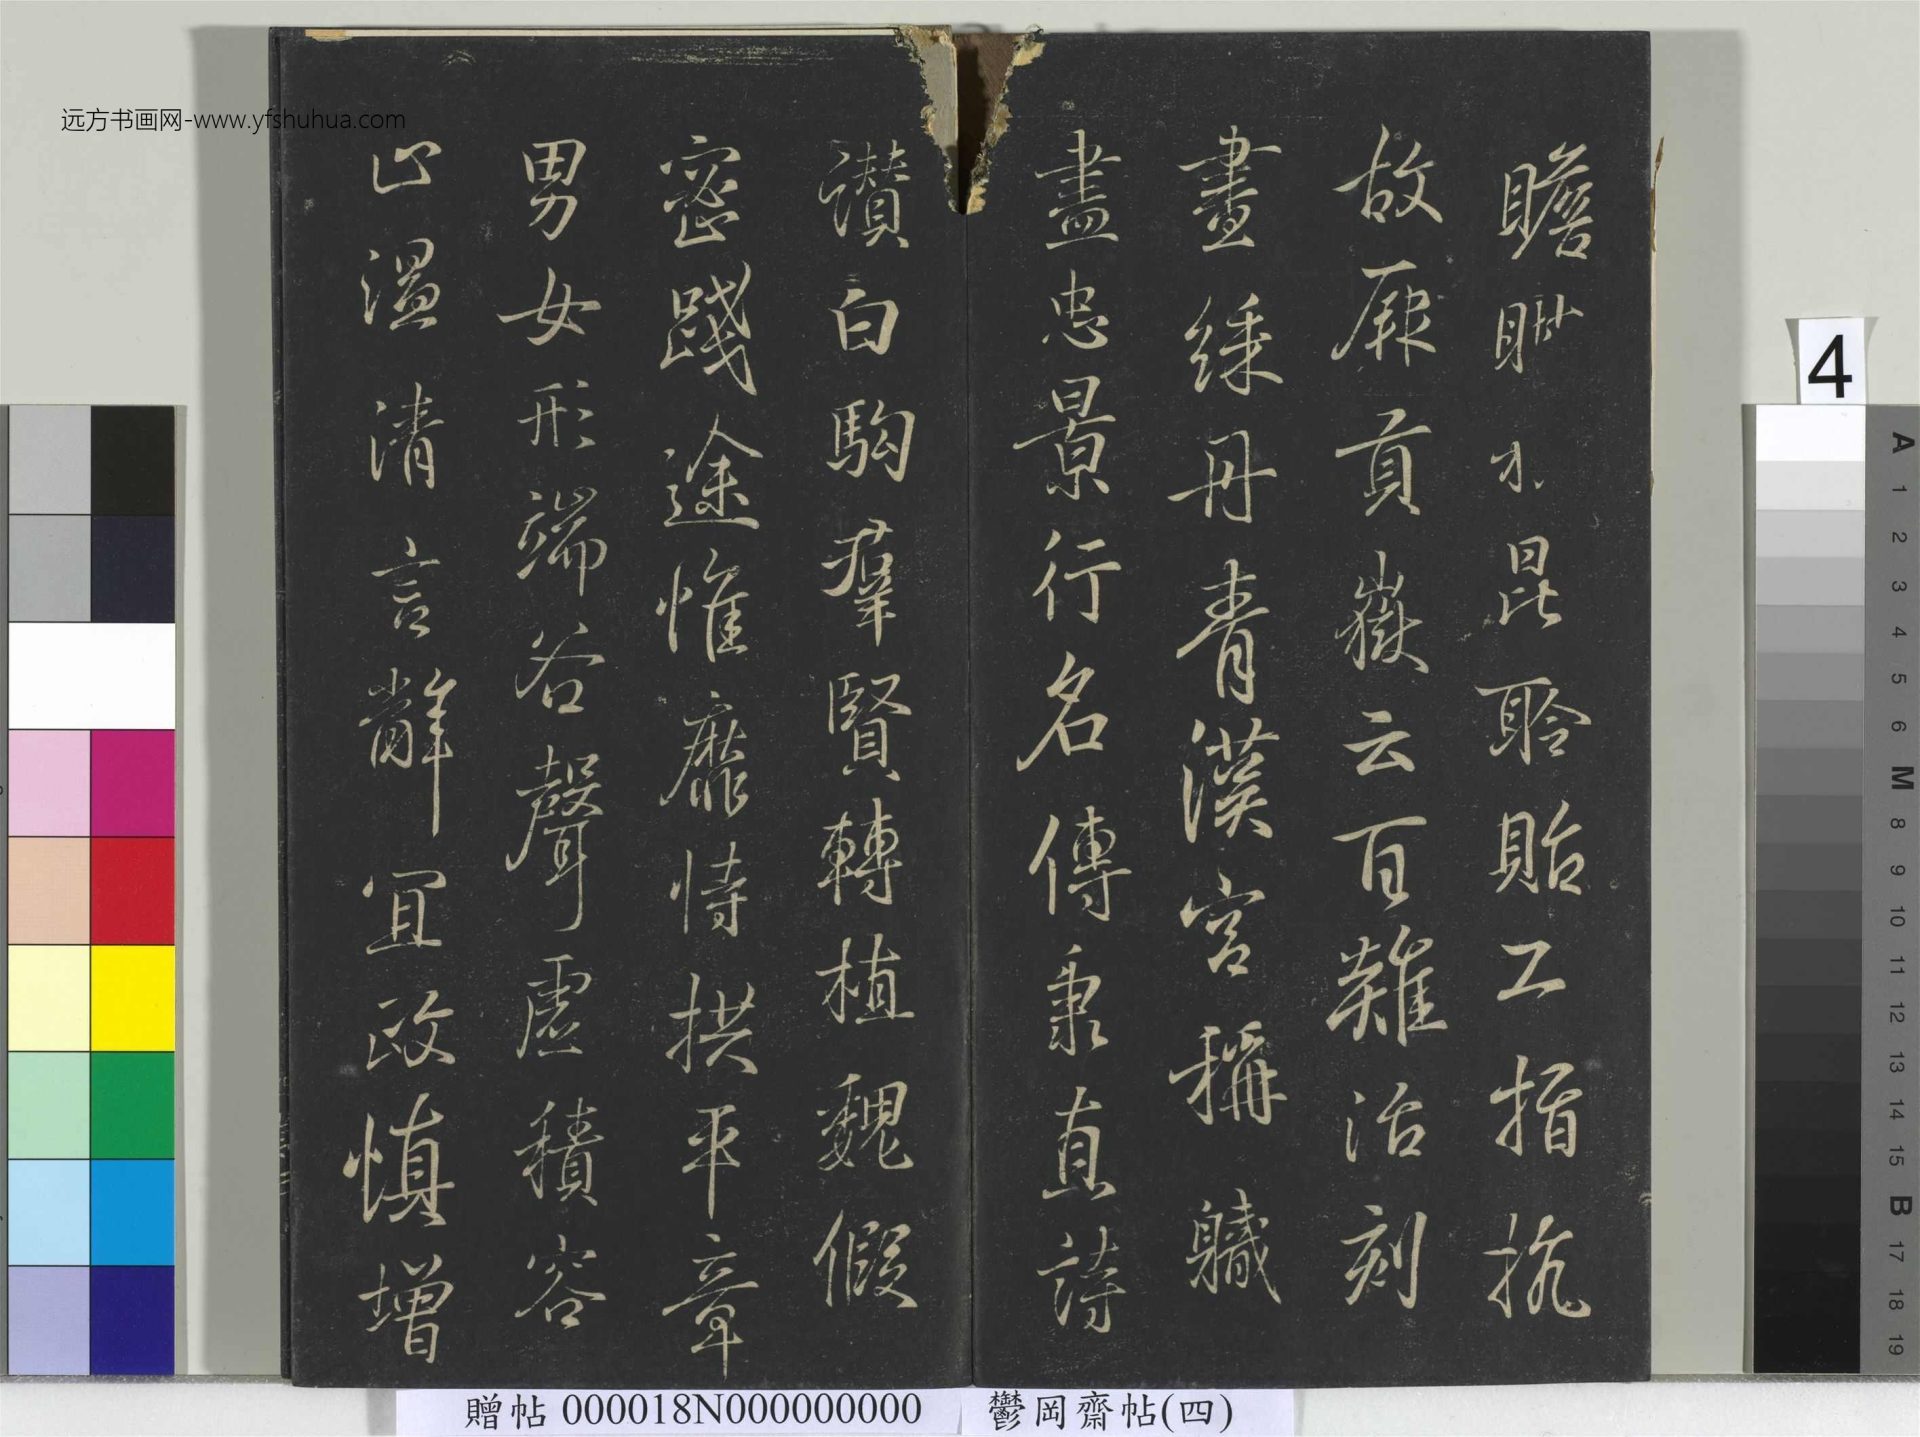 瞻眺水昆聆貽工指執
故厥貢嶽云百難治刻
畫綵丹青漢宮稱職
盡忠景行名傳秉直詩
讚白駒羣賢轉植魏假
密踐途惟靡恃拱平章
男女形端谷聲虛積容
止溫清言辭宜政慎增
远方书画网-www.yfshuhua.com
4
A
1
2
3
4
5
6
M
8
9
10
11
12
13
14
15
B
17
18
19
贈帖 000018N000000000
鬱岡齋帖(四)